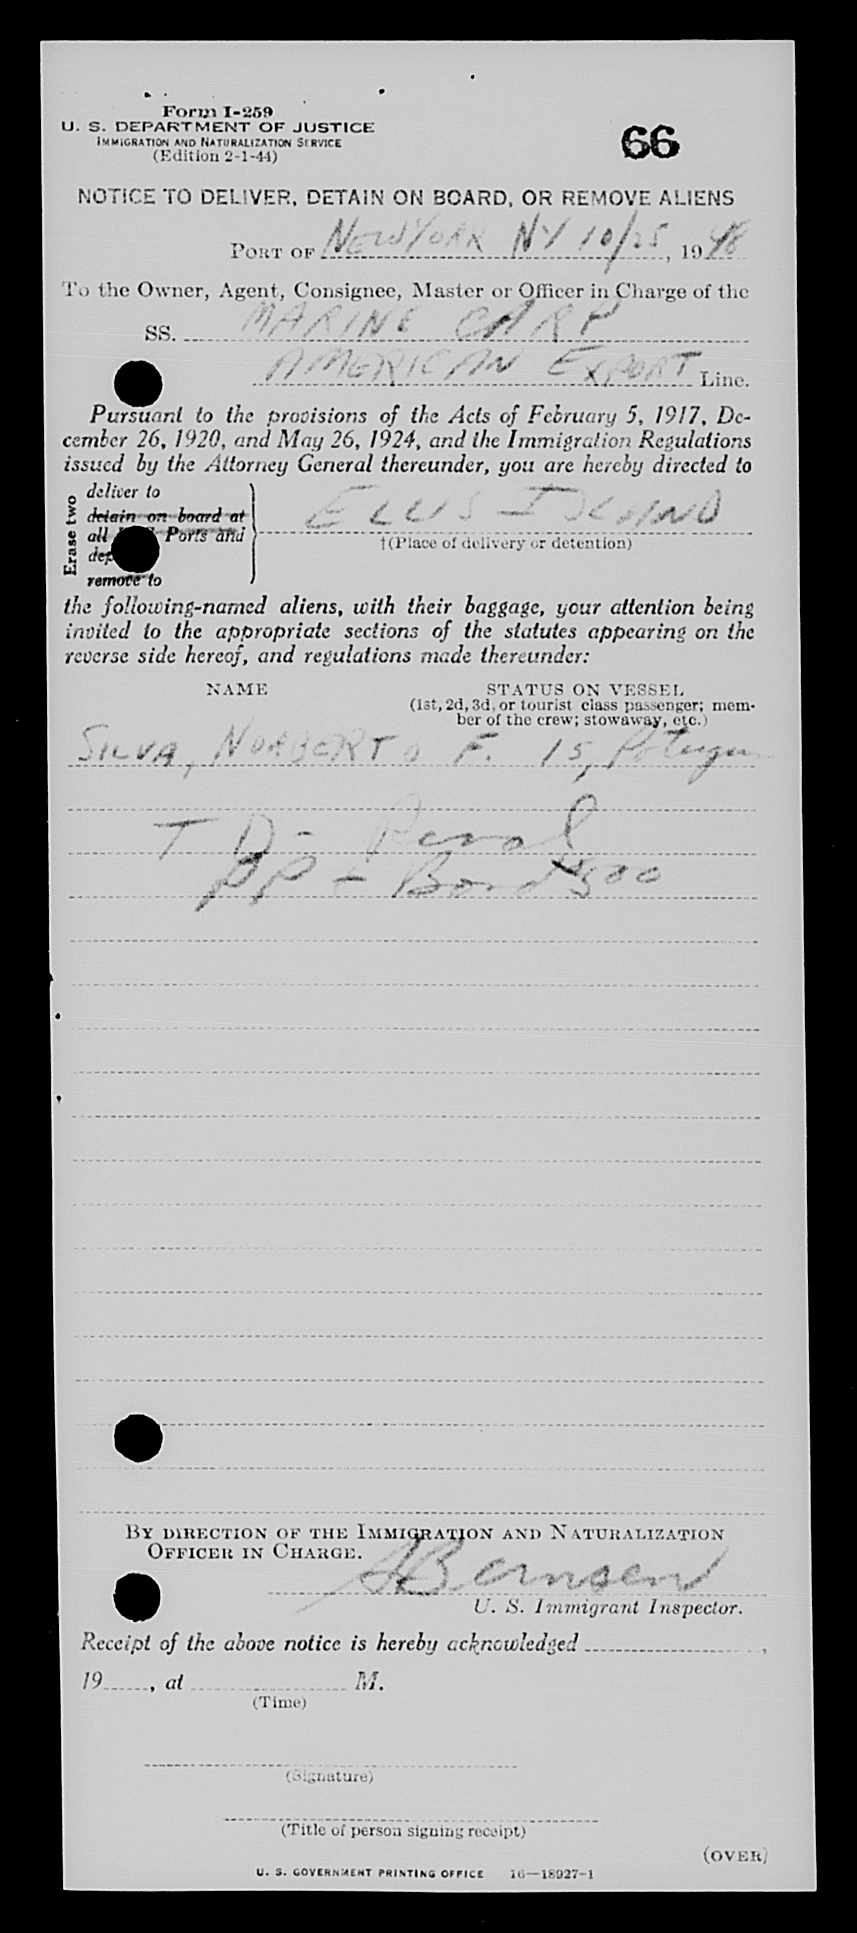 Form I-259
U. S. DEPARTMENT OF JUSTICE
IMMIGRATION AND NATURALIZATION SERVICE
(Edition 2-1-44)
66
NOTICE TO DELIVER, DETAIN ON BOARD, OR REMOVE ALIENS
PORT OF NEW YORK NY 10/25, 1948
To the Owner, Agent, Consignee, Master or Officer in Charge of the
SS. MARINE CARP
AMERICAN EXPORT Line.
Pursuant to the provisions of the Acts of February 5, 1917, De-
cember 26, 1920, and May 26, 1924, and the Immigration Regulations
issued by the Attorney General thereunder, you are hereby directed to
Erase two
deliver to
detain on board at
all Ports and
remove to
ELLIS ISLAND
†(Place of delivery or detention)
the following-named aliens, with their baggage, your attention being
invited to the appropriate sections of the statutes appearing on the
reverse side hereof, and regulations made thereunder:
NAME
STATUS ON VESSEL
(1st, 2d, 3d, or tourist class passenger; mem-
ber of the crew; stowaway, etc.)
SILVA, NORBERTO F. 15,
T D -
PP + Bond $500
BY DIRECTION OF THE IMMIGRATION AND NATURALIZATION
OFFICER IN CHARGE.
U. S. Immigrant Inspector.
Receipt of the above notice is hereby acknowledged ,
19 , at M.
(Time)
(Signature)
(Title of person signing receipt)
(OVER)
U. S. GOVERNMENT PRINTING OFFICE 16—18927-1